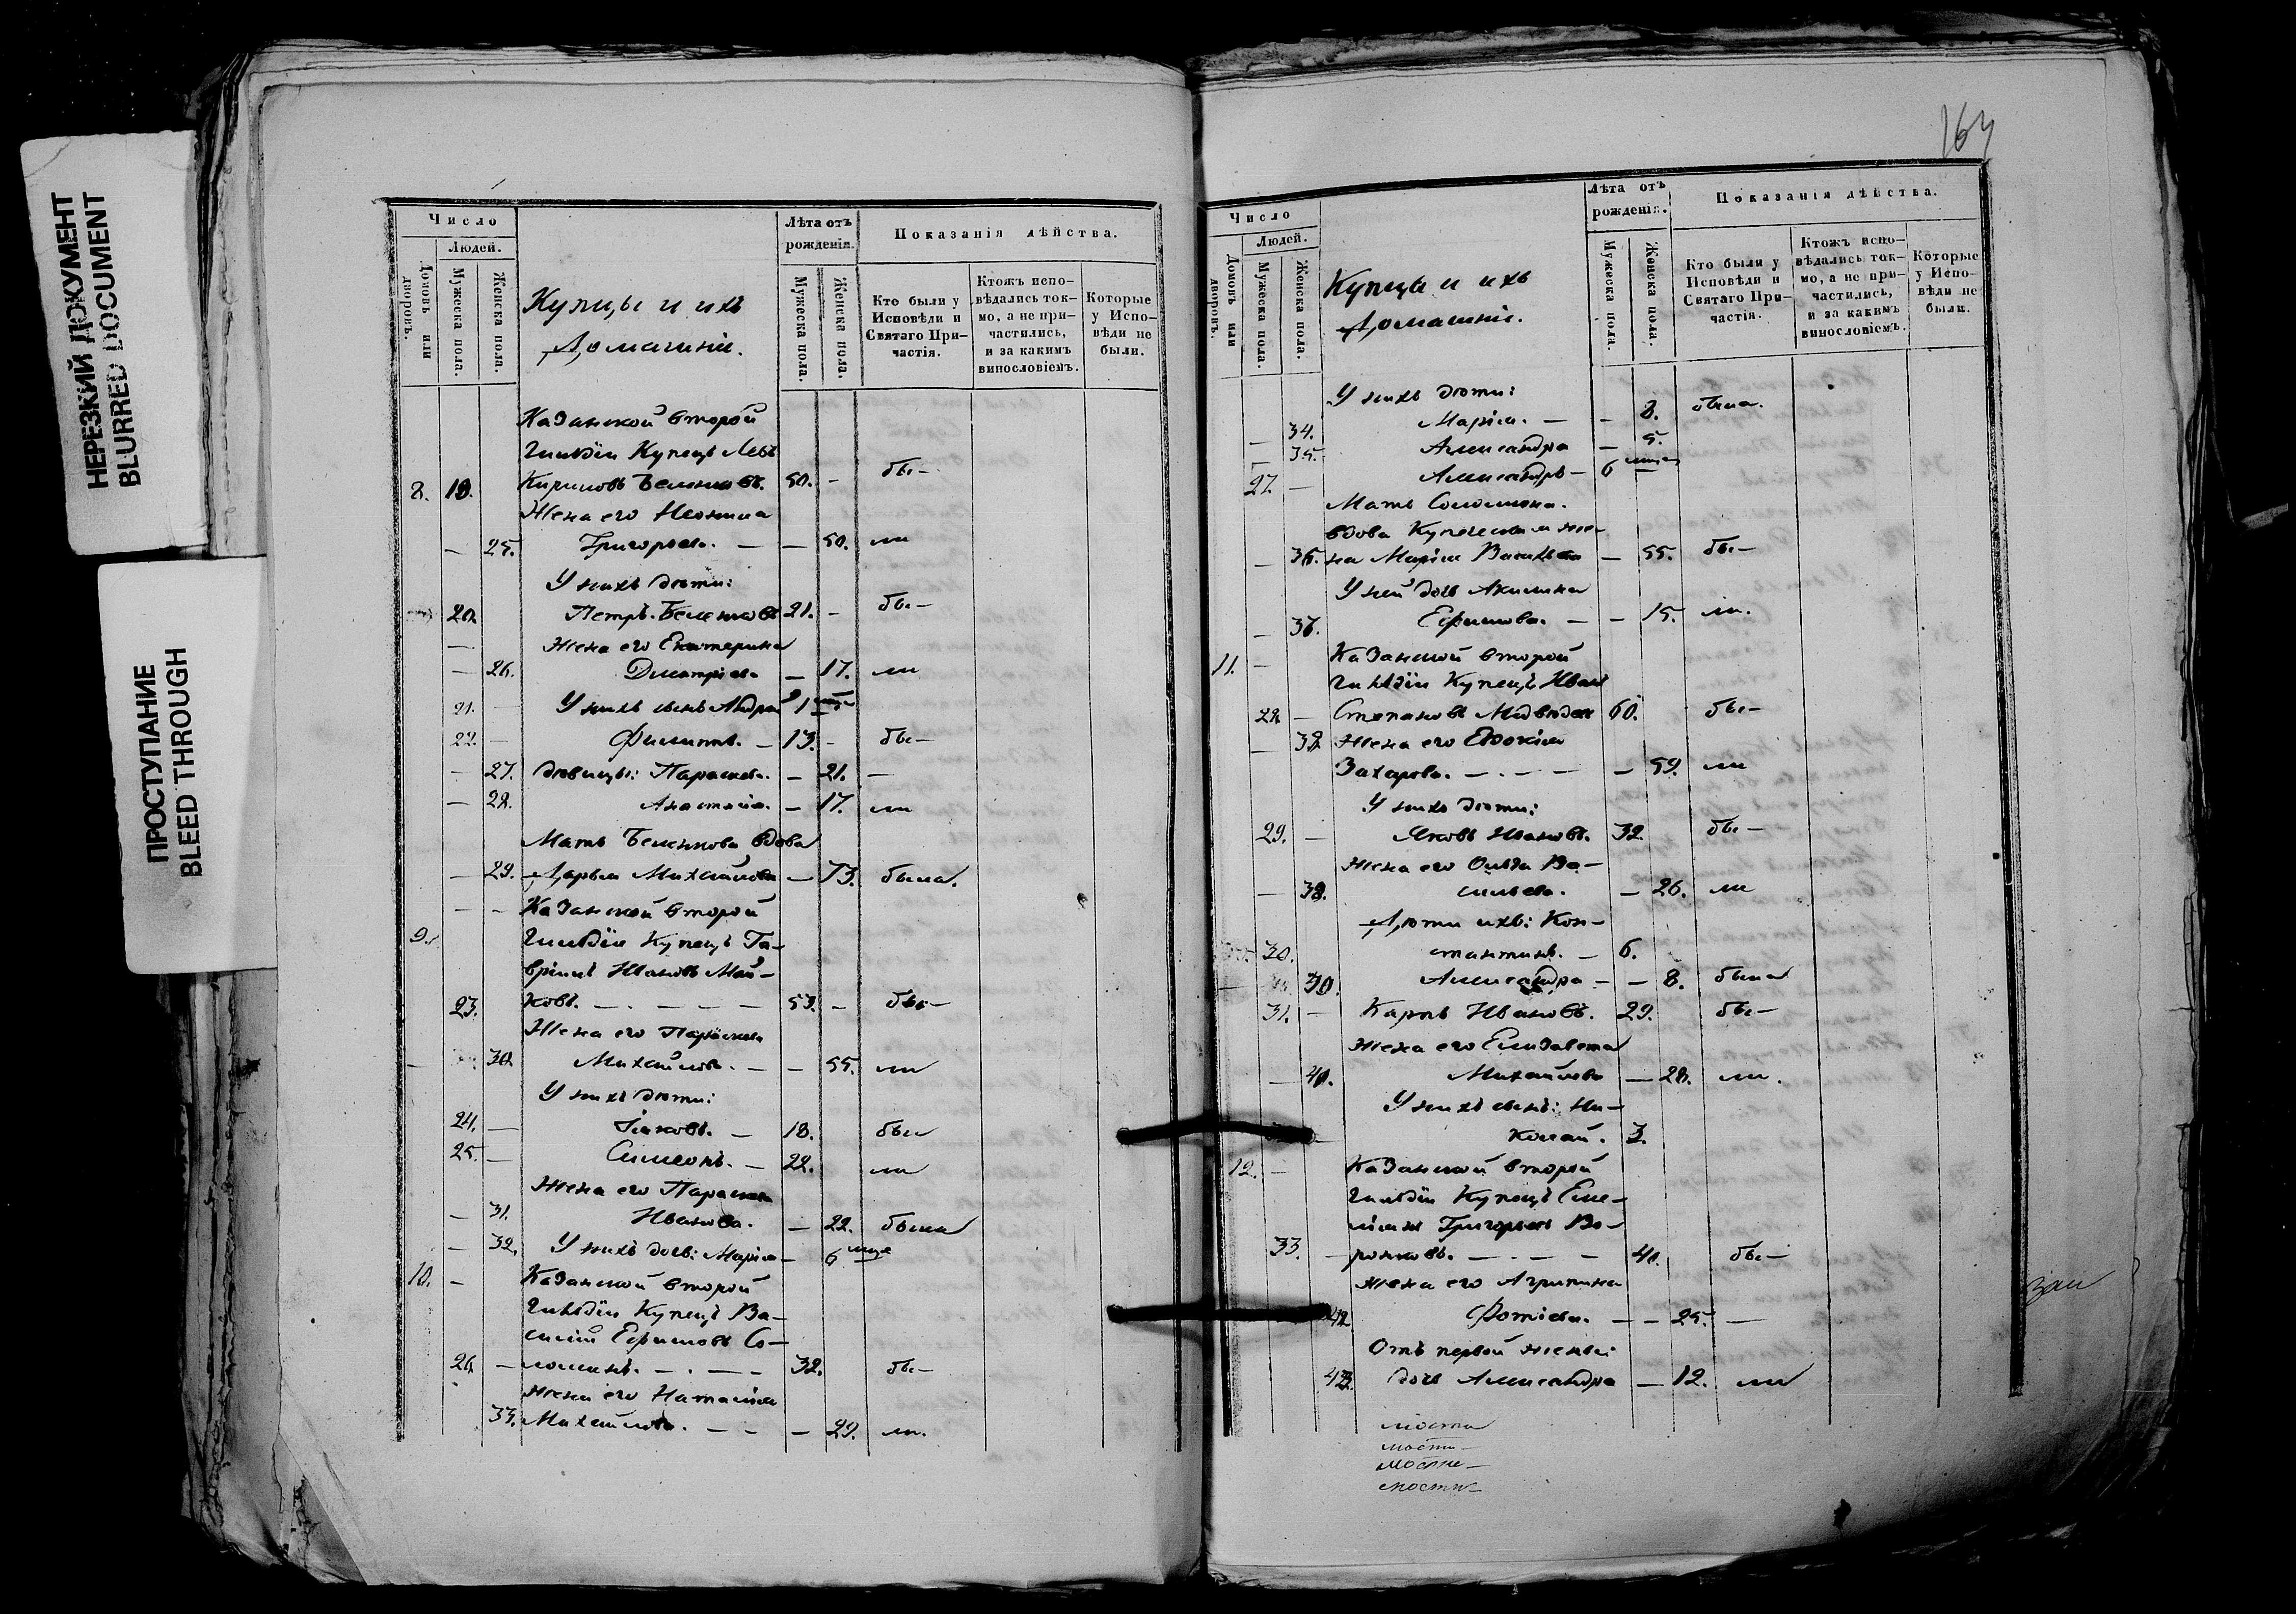 НЕРЕЗКИЙ ДОКУМЕНТ
BLURRED DOCUMENT
ПРОСТУПАНИЕ
BLEED THROUGH
Число
Людей.
Домовъ или дворовъ.
Мужеска пола.
Женска пола.
Купцы и ихъ
Домашніи.
Лѣта отъ
рожденія.
Мужеска пола.
Женска пола.
Показанія дѣйства.
Кто были у
Исповѣди и
Святаго При-
частія.
Ктожъ испо-
вѣдались ток-
мо, а не при-
частились,
и за какимъ
винословіемъ.
Которые
у Испо-
вѣди не
были.
Казанской второй
Гильдіи Купецъ Левъ
8. 19. Кириловъ 50. - бы-
Жена его
- 25. Григорьева. - - 50. ли
У нихъ дѣти:
20. Петръ 21. - бы-
Жена его Екатерина
- 26. Дмитріева - 17. ли
21. - У нихъ сынъ Андрей 1
22. - Филиппъ. - 13. - бы-
- 27. дѣвицы: Параскева. - 21. -
- 28. Анастасія. - 17. ли
Мать вдова
- 29. Дарья Михайлова - 73. была.
- - Казанской второй
9. Гильдіи Купецъ Га-
вріилъ Ивановъ Май-
23. ковъ. - - - - - 53. - бы-
Жена его Параскева
30. Михайлова. - - 55. ли
У нихъ дѣти:
24. - Іаковъ. - 18. бы
25. - Симеонъ. - 22. ли
Жена его Параскева
- 31. Иванова. - 22. была
- 32. У нихъ дочь: Марія - 6
10. - Казанской второй
Гильдіи Купецъ Ва-
силій Ефимовъ Со-
26. - ломинъ. - - - - 32. бы-
Жена его Наталія
33. Михайлова. - - - 29. ли.
164
Число
Людей.
Домовъ или дворовъ.
Мужеска пола
Женска пола.
Купцы и ихъ
Домашніи.
Лѣта отъ
рожденія.
Мужеска пола.
Женска пола.
Показанія дѣйства.
Кто были у
Исповѣди и
Святаго При-
частія.
Ктожъ испо-
вѣдались ток-
мо, а не при-
частились,
и за какимъ
винословіемъ.
Которые
у Испо-
вѣди не
были.
У нихъ дѣти:
- 34. Марія. - - 8. была.
- 35. Александра - 5.
27. - Александръ - 6
Мать Соломина.
вдова Купеческая же-
- 36. на Марія Васильева - 55. бы-
У ней дочь Акилина
- 37. Ефимова. - - 15. ли.
11. - Казанской второй
Гильдіи Купецъ Иванъ
28. - Степановъ Медвѣдевъ 60. бы-
- 38. Жена его Евдокія
Захарова. - - - - 59. ли
У нихъ дѣти:
29. - Яковъ Ивановъ. 32. бы-
Жена его Ольга Ва-
- 39. сильева. - 26. ли
Дѣти ихъ: Кон-
30. стантинъ. - 6.
Александра - - 8. была
31. - Карпъ Ивановъ. 29. бы-
Жена его Елизавета
Михайлова - 28. ли.
У нихъ сынъ: Ни-
колай. 3.
12. - Казанской второй
Гильдіи Купецъ Еме-
ліанъ Григорьевъ Во-
33. - ронковъ. - - - - 40. бы-
Жена его Агрипина
42. Фотіева. - - 25. -
Отъ первой жены:
43. дочь Александра - 12. ли